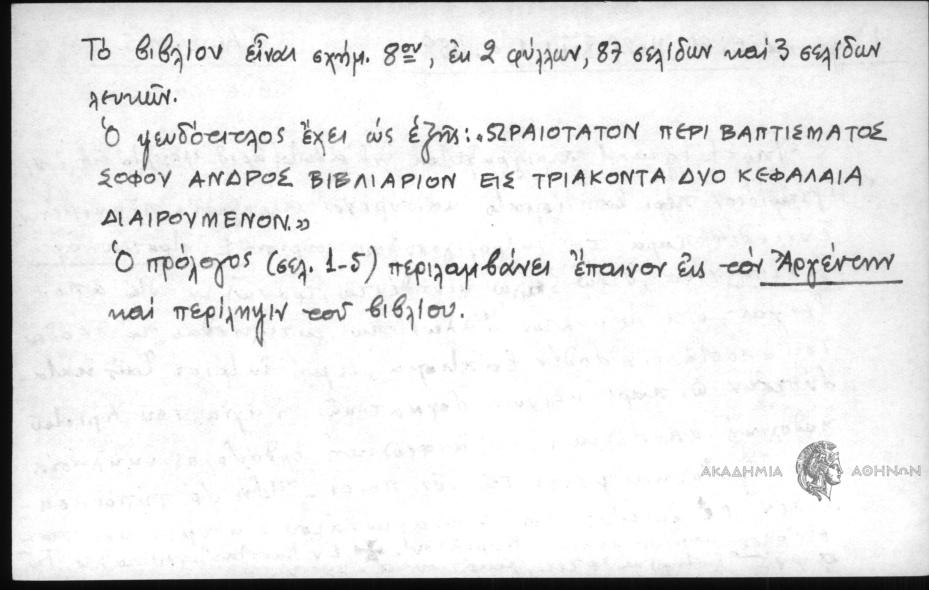 Τὸ βιβλίον εἶναι σχήμ. 8ον, ἐκ 2 φύλλων, 87 σελίδων καὶ 3 σελίδων
λευκῶν.
Ὁ ψευδότιτλος ἔχει ὡς ἑξῆς: «ΩΡΑΙΟΤΑΤΟΝ ΠΕΡΙ ΒΑΠΤΙΣΜΑΤΟΣ
ΣΟΦΟΥ ΑΝΔΡΟΣ ΒΙΒΛΙΑΡΙΟΝ ΕΙΣ ΤΡΙΑΚΟΝΤΑ ΔΥΟ ΚΕΦΑΛΑΙΑ
ΔΙΑΙΡΟΥΜΕΝΟΝ.»
Ὁ πρόλογος (σελ. 1-5) περιλαμβάνει ἔπαινον εἰς τὸν Ἀργέντην
καὶ περίληψιν τοῦ βιβλίου.
ΑΚΑΔΗΜΙΑ ΑΘΗΝΩΝ